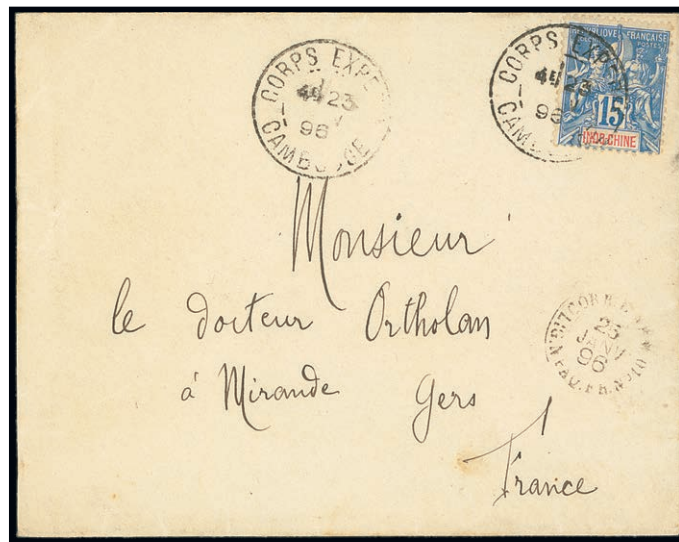 CORPS EXPE
23
96
CAMBODGE
CORPS EXPE
23
96
RÉPUBLIQUE FRANÇAISE
POSTES
15
INDO-CHINE
Monsieur
le docteur Ortholan
à Mirande Gers
France
25
JANV
96